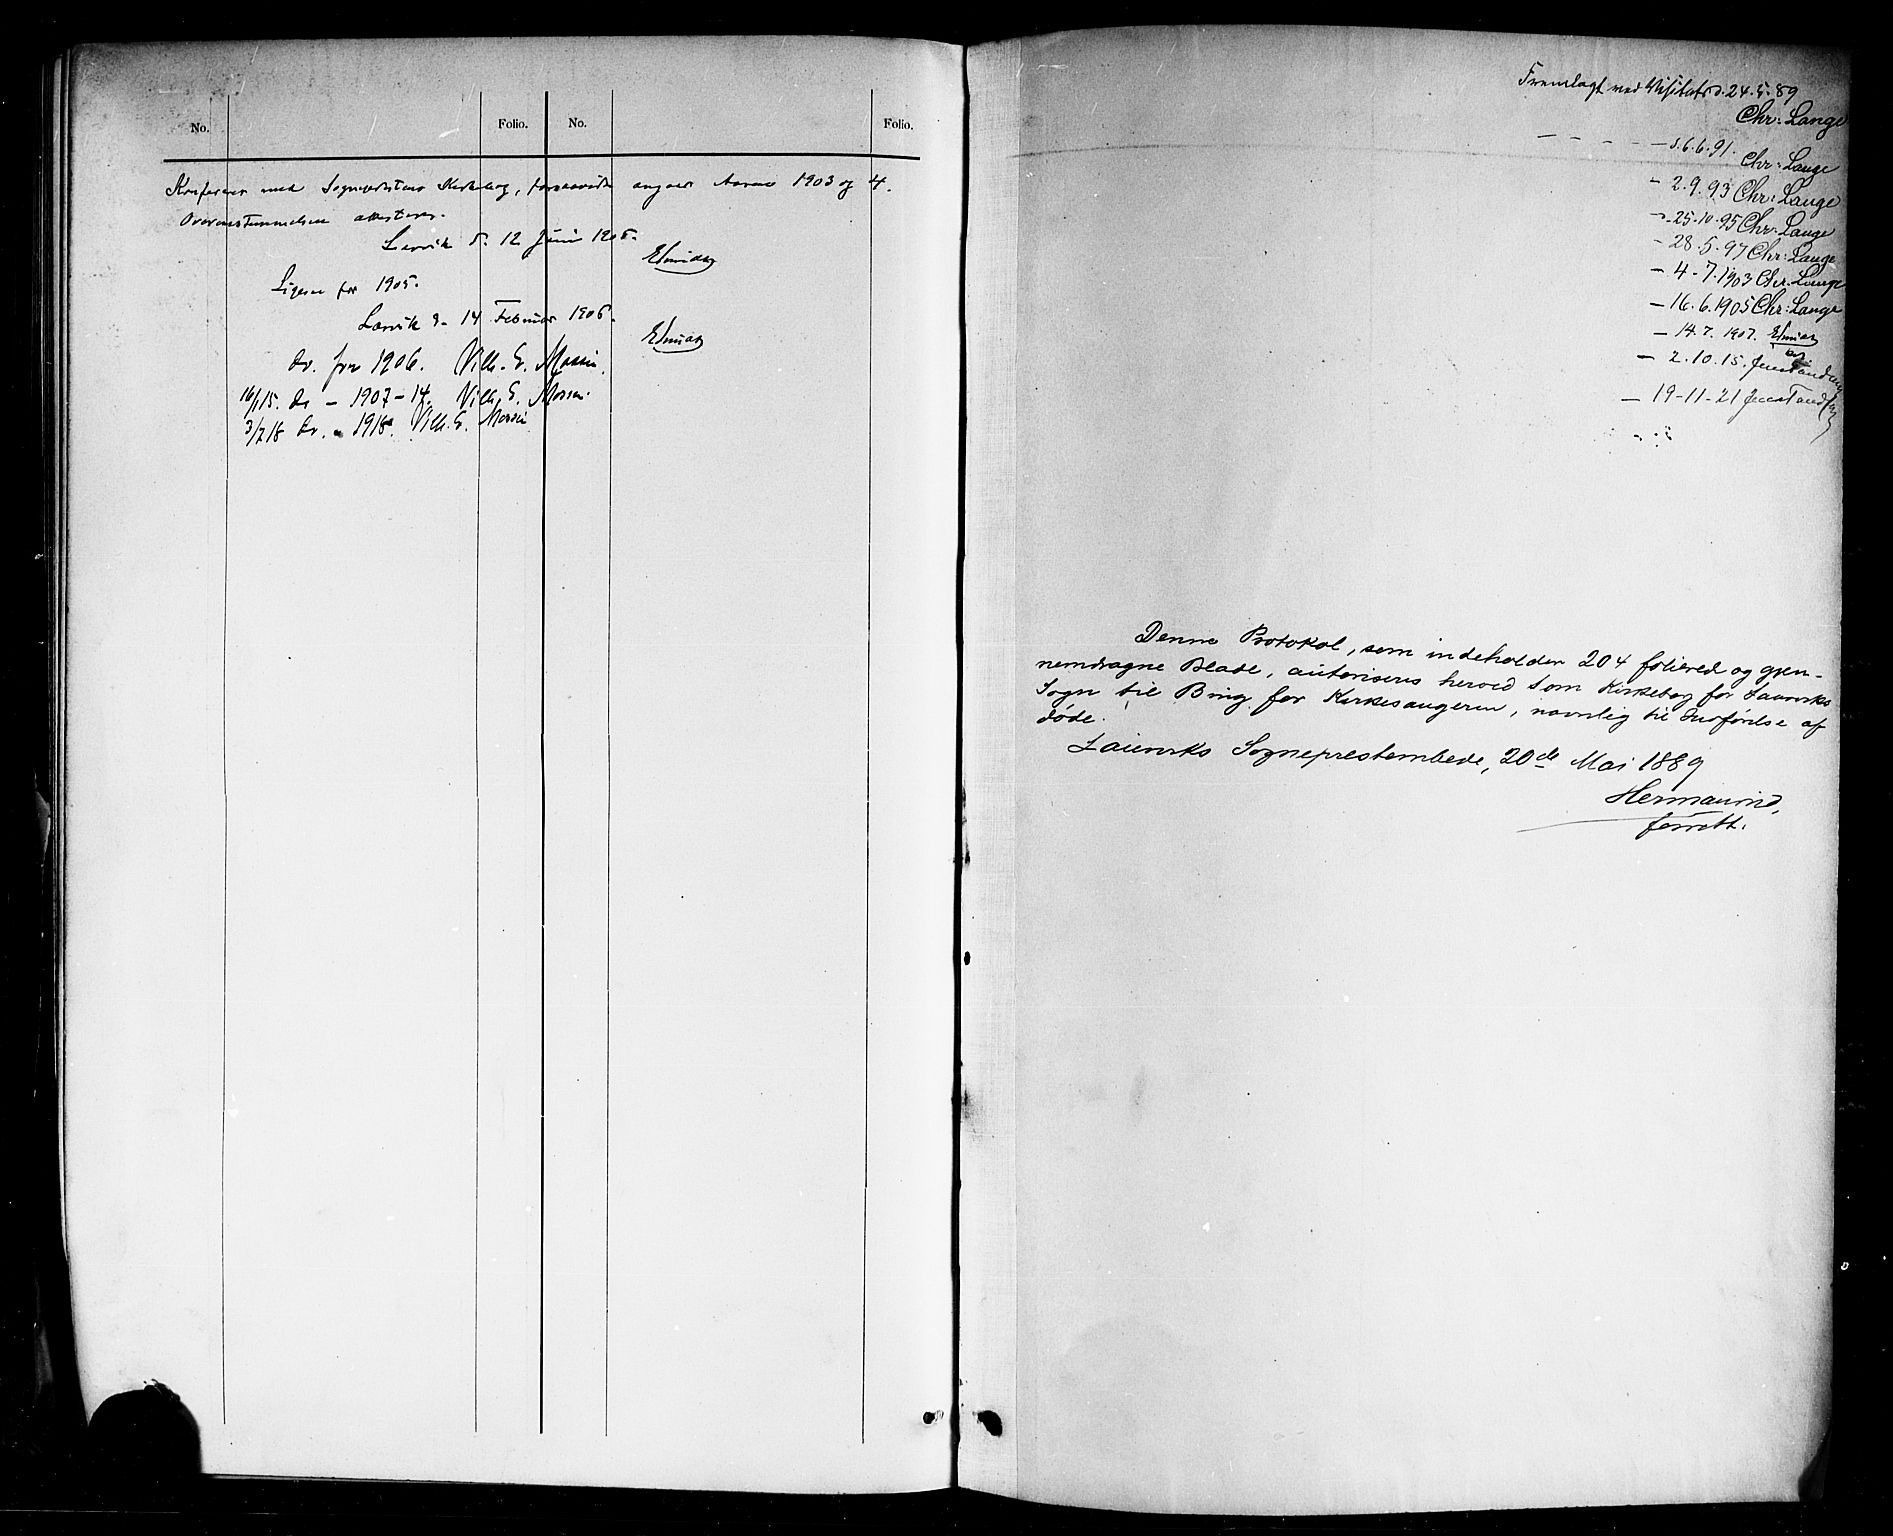 No. Folio. No. Folio.
Konfereret med Sognepræstens Kirkebog, forsaavidt angaar Aarene 1903 og 4.
Overensstemmelsen attesteres.
Larvik d. 12 Juni 1905.
Ligesaa for 1905.
Larvik d. 14 Februar 1906.
do. for 1906. Vilh. E.
16/1 15. do – 1907–14. Vilh. E.
3/7 18 do. " 1918. Vilh. E.
Fremlagt ved Visitats d. 24.5.89
Chr: Lange
— - - - — d. 6.6.91. Chr: Lange
- 2.9.93 Chr: Lange
- 25-10-95 Chr: Lange
- 28.5.97 Chr: Lange
- 4-7.1903 Chr. Lange
- 16.6.1905 Chr: Lange
- 14.7.1907.
- 2.10.15. Jens Tandberg
- 19-11-21 Jens Tandberg
Denne Protokol, som indeholder 204 folierede og gjen-
nemdragne Blade, autoriseres herved som Kirkebog for Laurviks
Sogn til Brug for Kirkesangeren, navnlig til Indførelse af
døde.
Laurviks Sogneprestembede, 20de Mai 1889